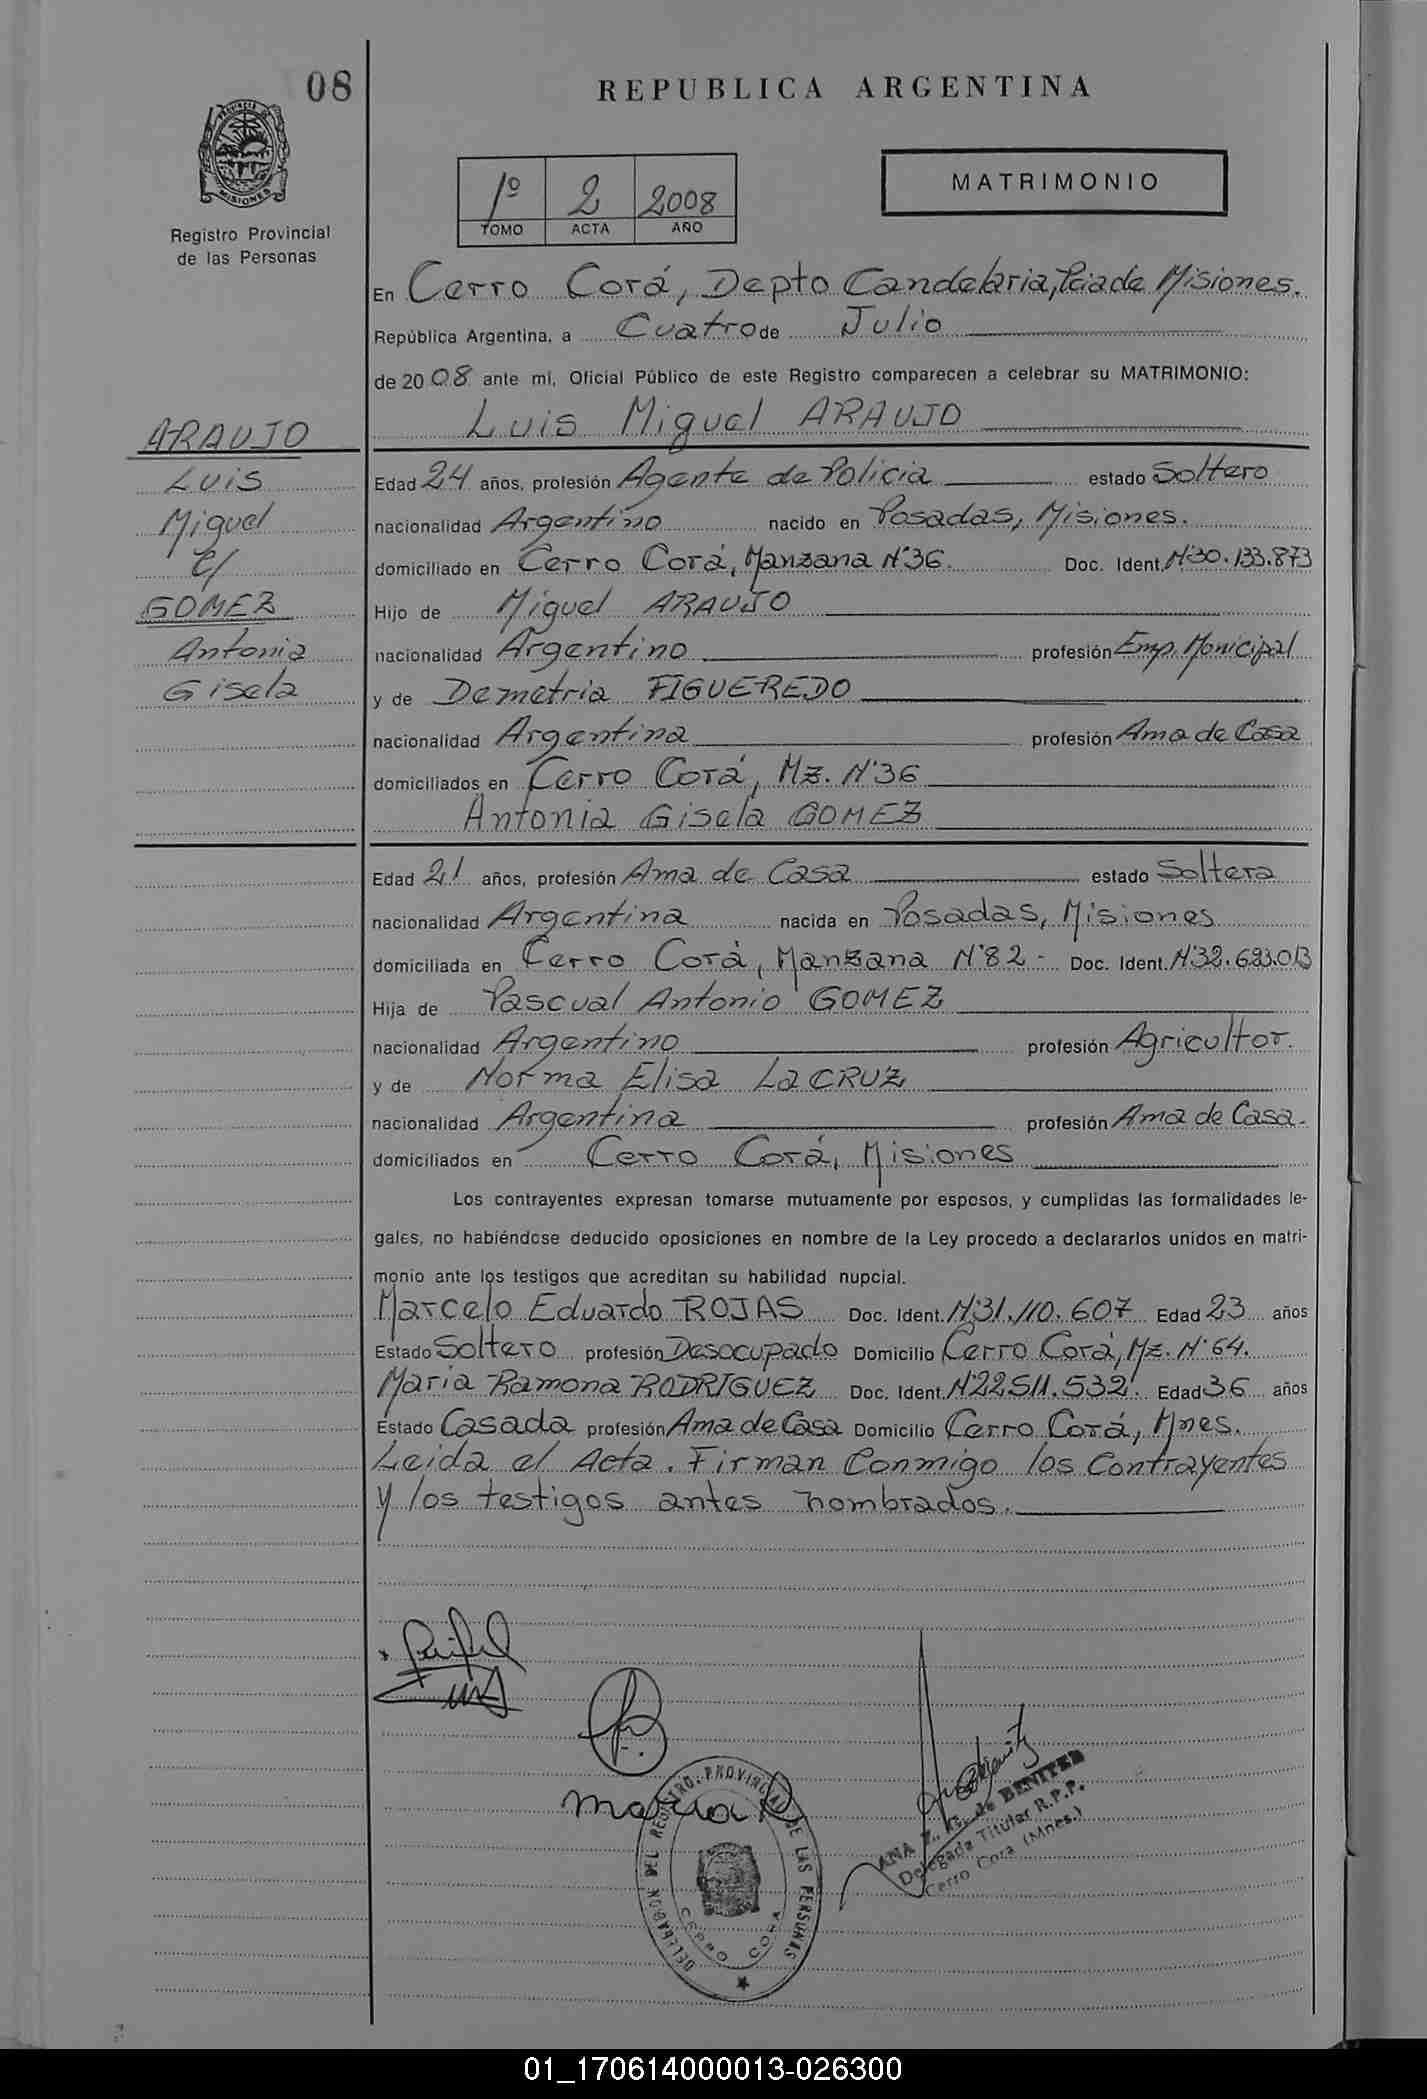 08
REPUBLICA ARGENTINA
PROVINCIA DE
MISIONES
Registro Provincial
de las Personas
1º 2 2008
TOMO ACTA AÑO
MATRIMONIO
En Cerro Corá, Depto Candelaria, Pcia de Misiones.
República Argentina, a Cuatro de Julio
de 2008 ante mí, Oficial Público de este Registro comparecen a celebrar su MATRIMONIO:
Luis Miguel ARAUJO
ARAUJO
Luis
Miguel
C/
GOMEZ
Antonia
Gisela
Edad 24 años, profesión Agente de Policia estado Soltero
nacionalidad Argentino nacido en Posadas, Misiones.
domiciliado en Cerro Corá, Manzana Nº36. Doc. Ident. Nº30.133.873
Hijo de Miguel ARAUJO
nacionalidad Argentino profesión Emp. Municipal
y de Demetria FIGUEREDO
nacionalidad Argentina profesión Ama de Casa
domiciliados en Cerro Corá, Mz. Nº36
Antonia Gisela GOMEZ
Edad 21 años, profesión Ama de Casa estado Soltera
nacionalidad Argentina nacida en Posadas, Misiones
domiciliada en Cerro Corá, Manzana Nº82- Doc. Ident. Nº32.693.013
Hija de Pascual Antonio GOMEZ
nacionalidad Argentino profesión Agricultor.
y de Norma Elisa LaCRUZ
nacionalidad Argentina profesión Ama de Casa.
domiciliados en Cerro Corá, Misiones
Los contrayentes expresan tomarse mutuamente por esposos, y cumplidas las formalidades le-
gales, no habiéndose deducido oposiciones en nombre de la Ley procedo a declararlos unidos en matri-
monio ante los testigos que acreditan su habilidad nupcial.
Marcelo Eduardo ROJAS Doc. Ident. Nº31.110.607 Edad 23 años
Estado Soltero profesión Desocupado Domicilio Cerro Corá, Mz. Nº64.
Maria Ramona RODRIGUEZ Doc. Ident. Nº22511.532. Edad 36 años
Estado Casada profesión Ama de Casa Domicilio Cerro Corá, Mnes.
Leida el Acta. Firman Conmigo los Contrayentes
y los testigos antes nombrados.
maria R
DELEGACION DEL REGISTRO PROVINCIAL DE LAS PERSONAS
CERRO CORA
ANA de BENITEZ
Delegada Titular R.P.P.
Cerro Cora (Mnes.)
01_170614000013-026300